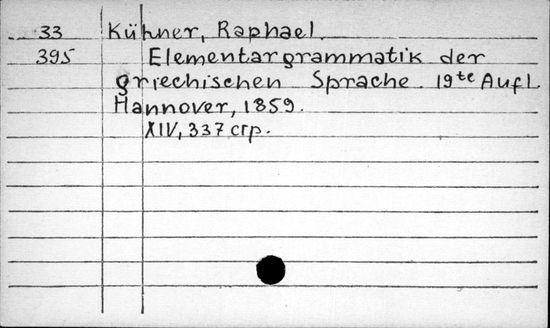 33 Kühner, Raphael.
395 Elementargrammatik der
griechischen Sprache. 19te Aufl.
Hannover, 1859.
XIV, 337 стр.